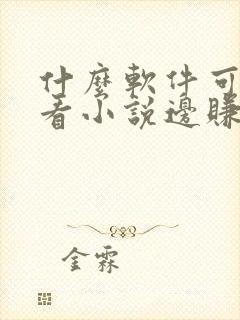 什麼軟件可
看小說邊賺
金霖